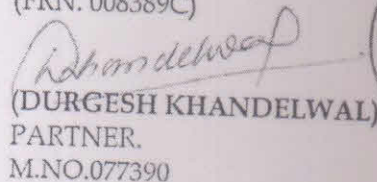 (FRN. 008389C)
(DURGESH KHANDELWAL)
PARTNER.
M.NO.077390